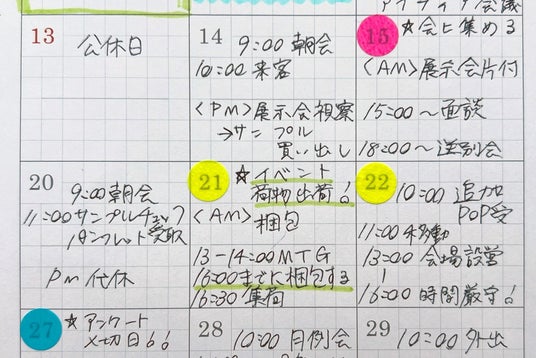 13
公休日
14
9:00 朝会
10:00 来客
<PM>展示会視察
→サンプル
買い出し
15
☆会と集める
<AM>展示会片付
15:00〜面談
18:00〜送別会
20
9:00朝会
11:00サンプルチェック
パンフレット受取
pm 代休
21
☆イベント
荷物出荷!
<AM>
梱包
13-14:00MTG
16:00までに梱包する
16:30 集荷
22
10:00 追加
POP受
11:00移動
13:00 会場設営
16:00 時間厳守!
27
☆アンケート
〆切日!!
28
10:00 月例会
29
10:00 外出